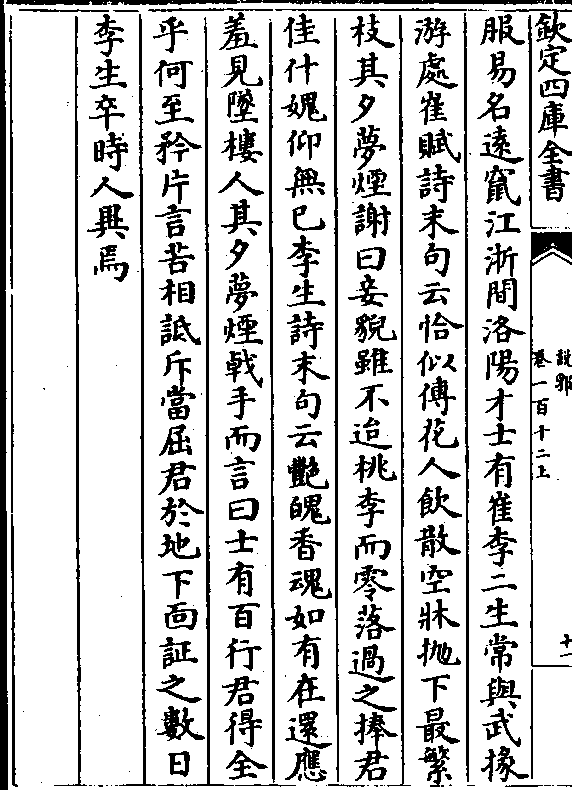 欽定四庫全書
說郛
卷一百十二上
十一
服易名遠竄江浙間洛陽才士有崔李二生常與武掾
游處崔賦詩末句云恰似傅花人飲散空牀抛下最繁
枝其夕夢煙謝曰妾貌雖不迨桃李而零落過之捧君
佳什媿仰無已李生詩末句云艷魄香魂如有在還應
羞見墜樓人其夕夢煙戟手而言曰士有百行君得全
乎何至矜片言苦相詆斥當屈君於地下面証之數日
李生卒時人異焉